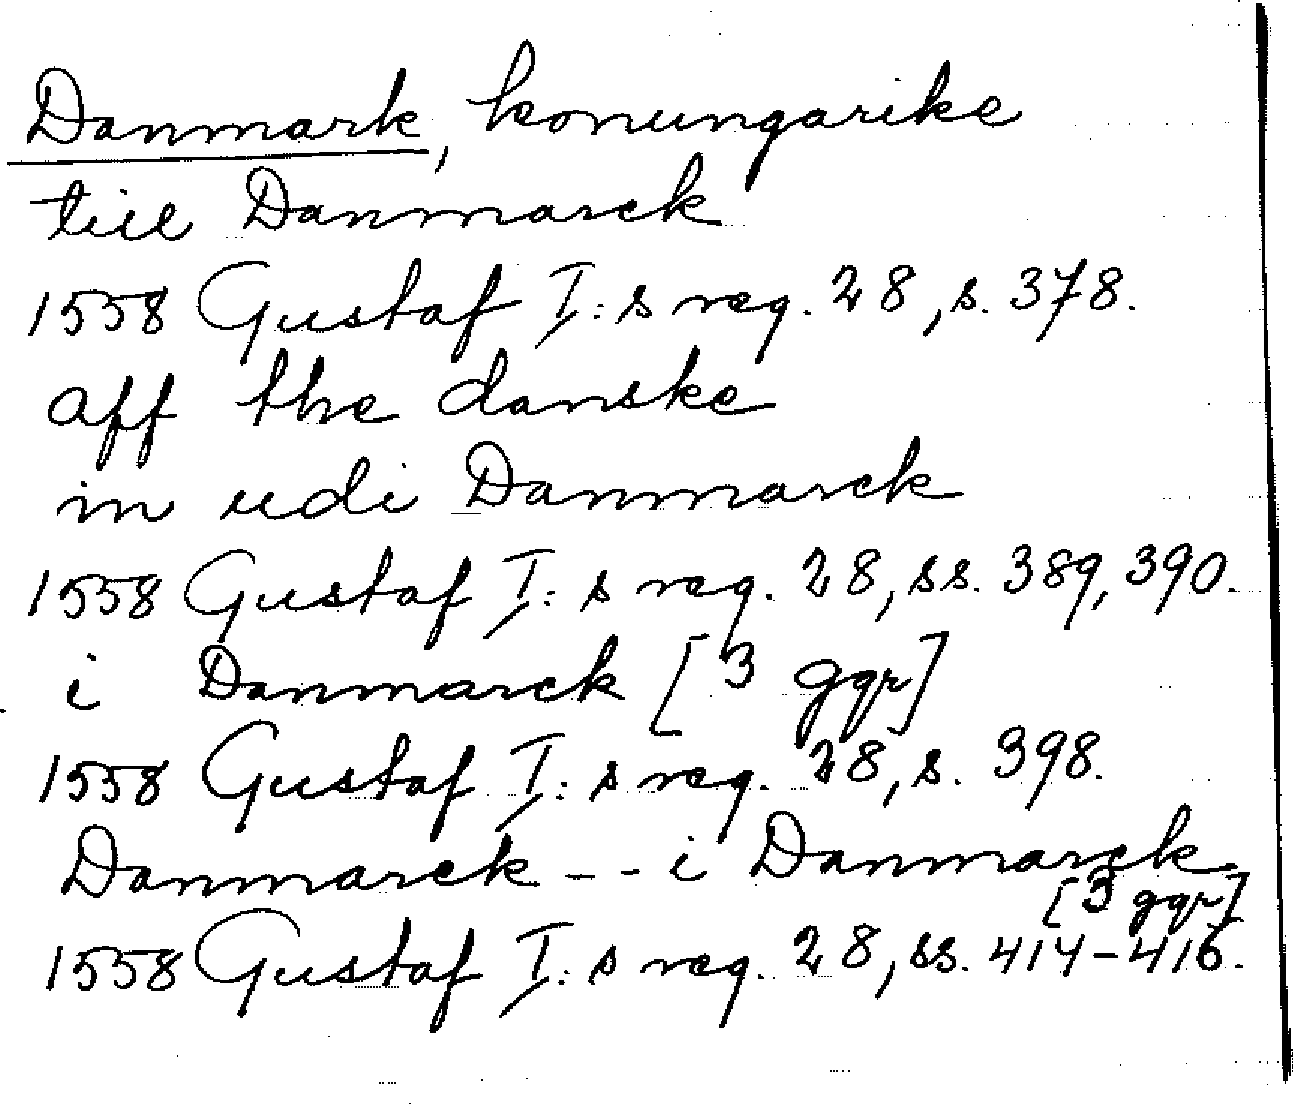 Danmark, konungarike
till Danmarck
1558 Gustaf I:s reg. 28, s. 378.
aff the danske
in udi Danmarck
1558 Gustaf I:s reg. 28, ss. 389, 390.
i Danmarck [3 ggr]
1558 Gustaf I:s reg. 28, s. 398.
Danmarck - - i Danmarck
[3 ggr]
1558 Gustaf I:s reg. 28, ss. 414-416.